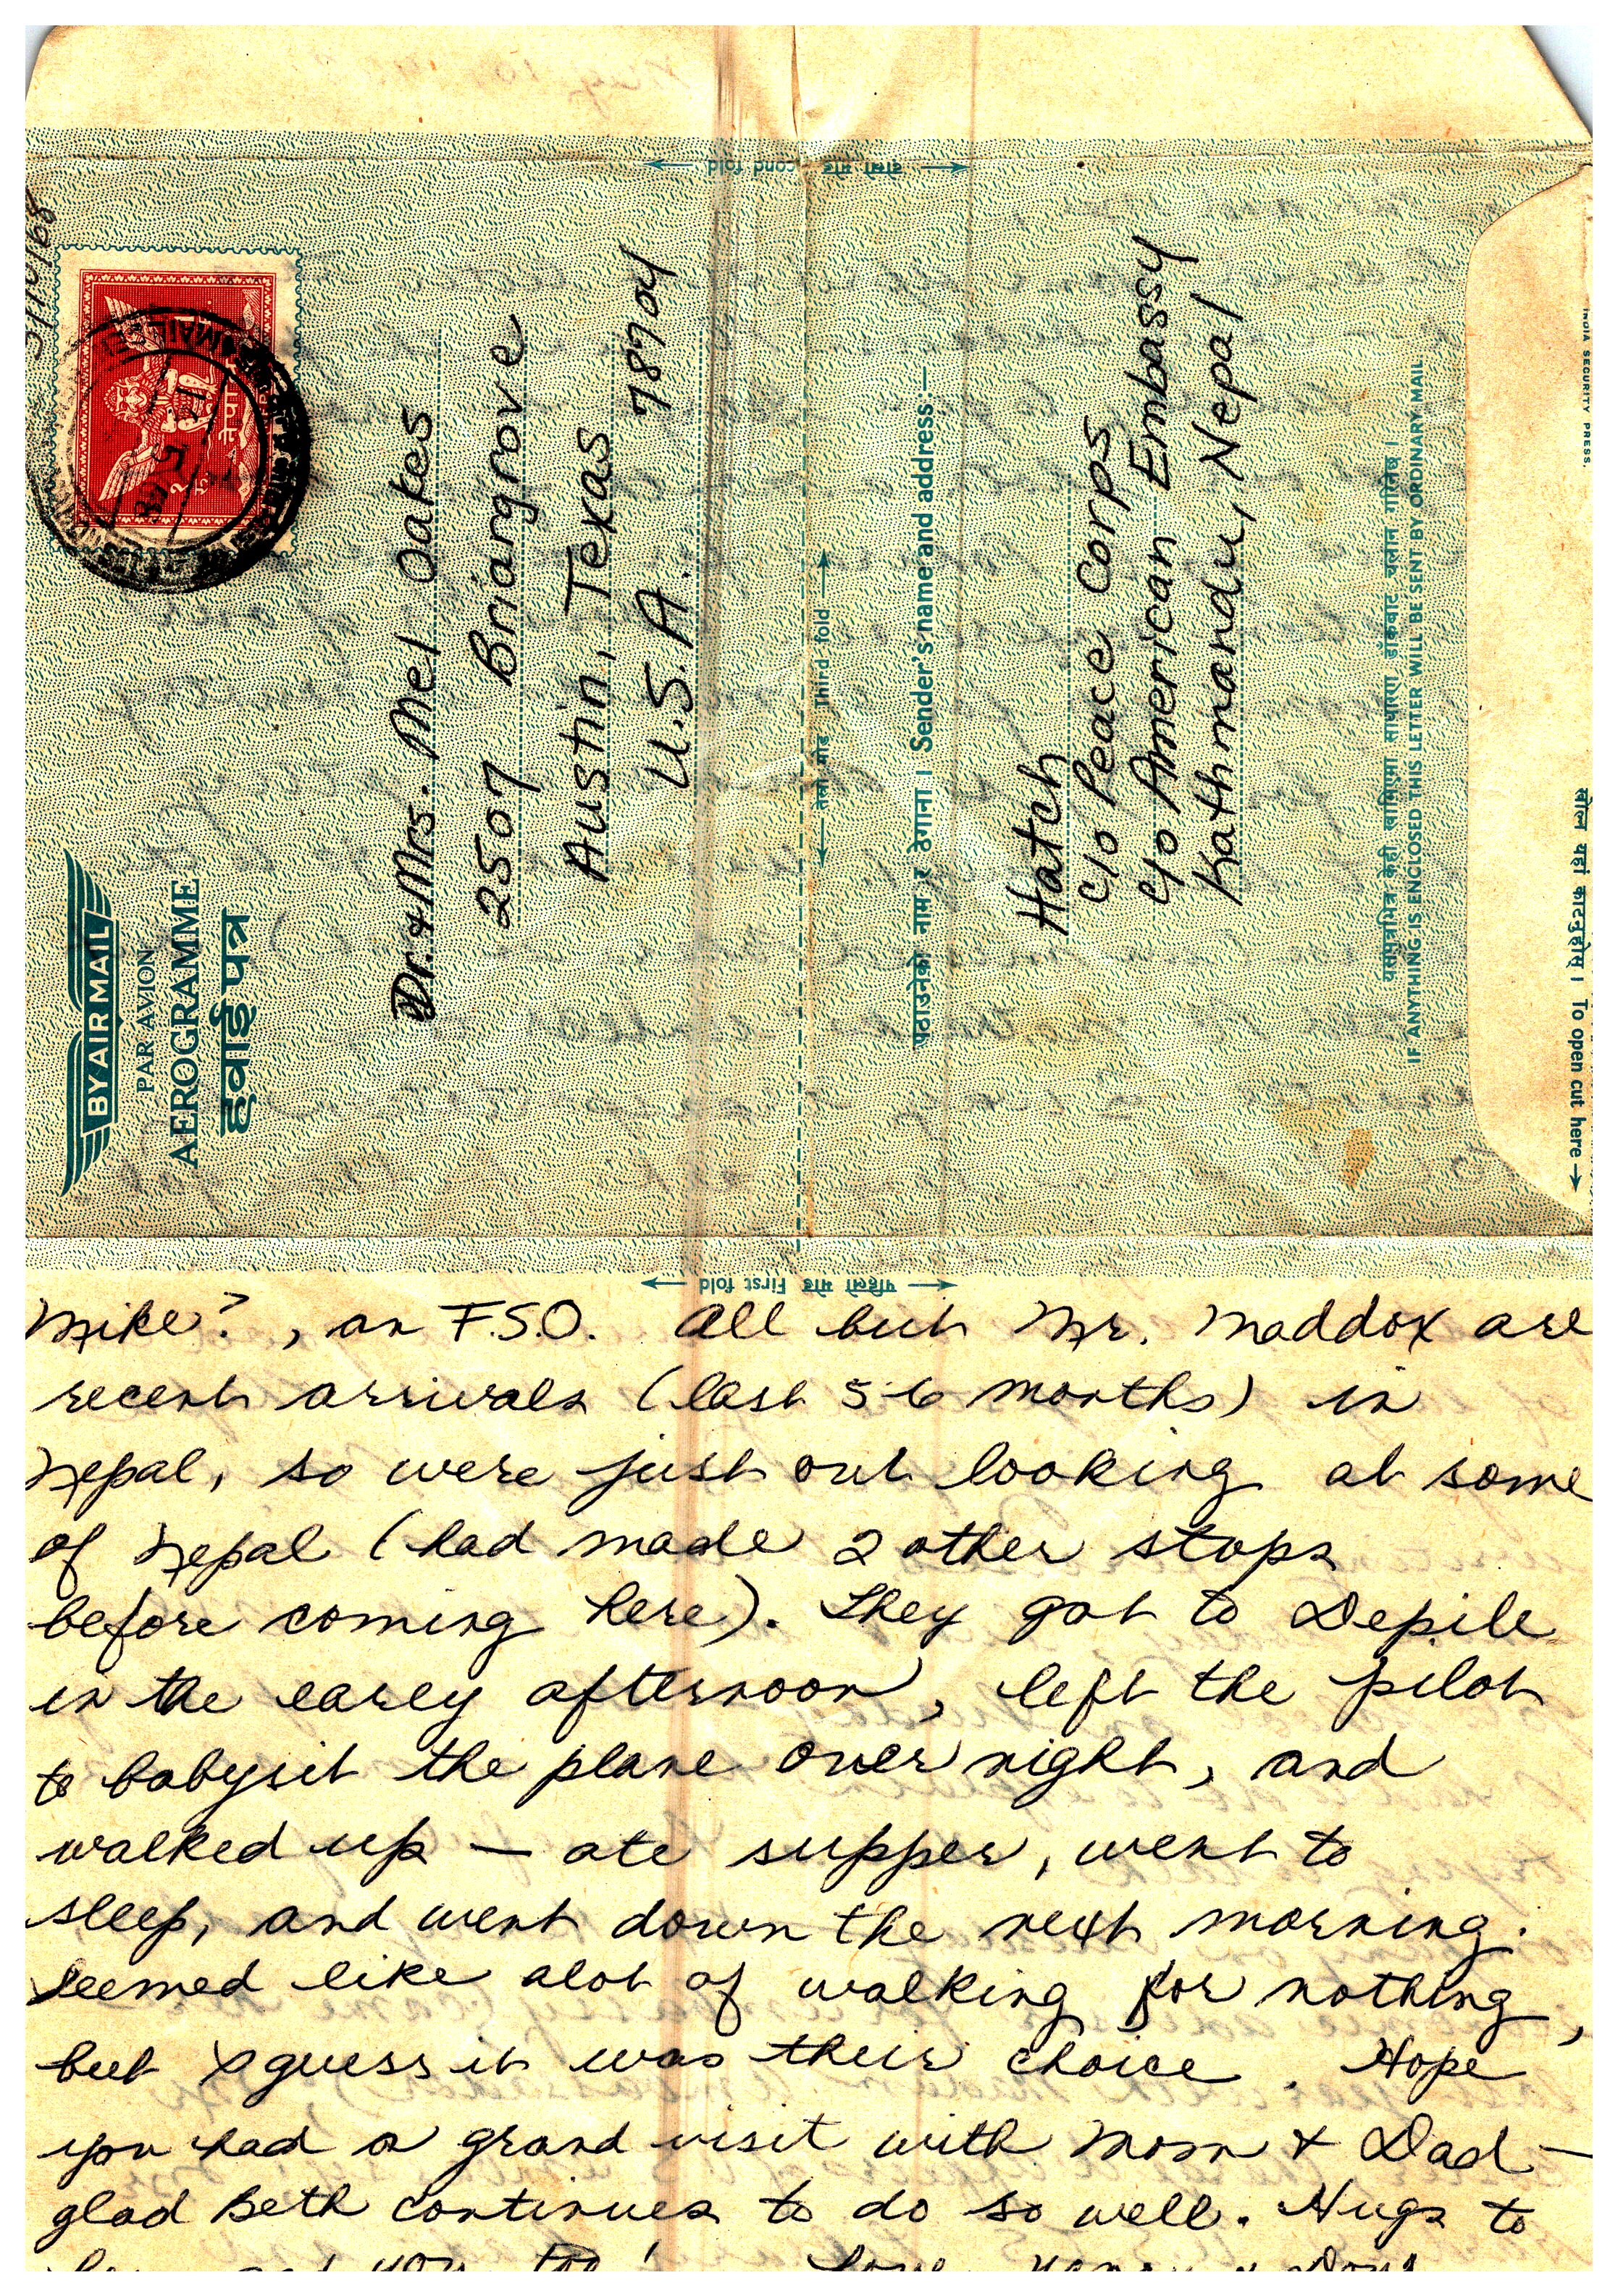 5/10/68
BY AIR MAIL
PAR AVION
AEROGRAMME
हवाई पत्र
नेपाल
Dr. & Mrs. Mel Oakes
2507 Briargrove
Austin, Texas 78704
U.S.A.
दोस्रो मोड
cond fold
तेस्रो मोड Third fold
पठाउनेको नाम र ठेगाना । Sender's name and address:—
Hatch
c/o Peace Corps
c/o American Embassy
Kathmandu, Nepal
यसपत्रभित्र केही खामिएमा साधारण डाँकबाट चलान गरिनेछ ।
IF ANYTHING IS ENCLOSED THIS LETTER WILL BE SENT BY ORDINARY MAIL
INDIA SECURITY PRESS.
खोल्न यहां काट्नुहोस् । To open cut here
पहिलो मोड First fold
Mike?, an F.S.O. All but Mr. Maddox are
recent arrivals (last 5-6 months) in
Nepal, so were just out looking at some
of Nepal (had made 2 other stops
before coming here). They got to Depile
in the earey afternoon, left the pilot
to babysit the plane over night, and
walked up — ate supper, went to
sleep, and went down the next morning.
Seemed like alot of walking for nothing,
but I guess it was their choice. Hope
you had a grand visit with Mom & Dad —
glad Beth continues to do so well. Hugs to
her and you too! Love, Nancy & Doug